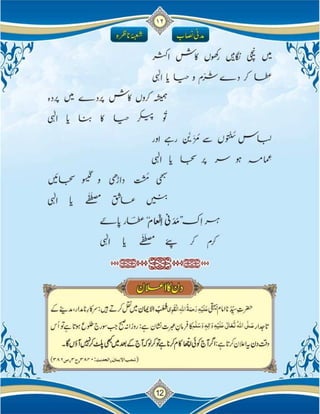 مدنی نصاب
۱۲
شعبۂ ناظرہ
میں نیچی نگاہیں رکھوں کاش اکثر
عطا کر دے شرم و حیا یا الٰہی
ہمیشہ کروں کاش پردے میں پردہ
تُو پیکر حیا کا بنا یا الٰہی
لباس سُنّتوں سے مُزَیَّن رہے اور
عمامہ ہو سر پر سجا یا الٰہی
سبھی مُشت داڑھی و گیسو سجائیں
بنیں عاشقِ مصطفےٰ یا الٰہی
ہر اِک "مَدَنی اِنْعام" عطار پائے
کرم کر پئے مصطفےٰ یا الٰہی
دن کا اعلان
حضرتِ سیِّدُنا امام بَیْہَقِی عَلَیْہِ رَحْمَۃُ اللہِ الْقَوِی شُعَبُ الْاِیْمان میں نَقْل کرتے ہیں: سرکارِ نامدار، مدینے کے
تاجدار صَلَّی اللہُ تَعَالٰی عَلَیْہِ وَاٰلِہٖ وَسَلَّم کا فرمانِ عبرت نشان ہے: روزانہ صبح جب سورج طلوع ہوتا ہے تو اُس
وَقْت دن یہ اعلان کرتا ہے: اگر آج کوئی اچھا کام کرنا ہے تو کر لو کہ آج کے بعد میں کبھی پلٹ کر نہیں آؤں گا۔
12